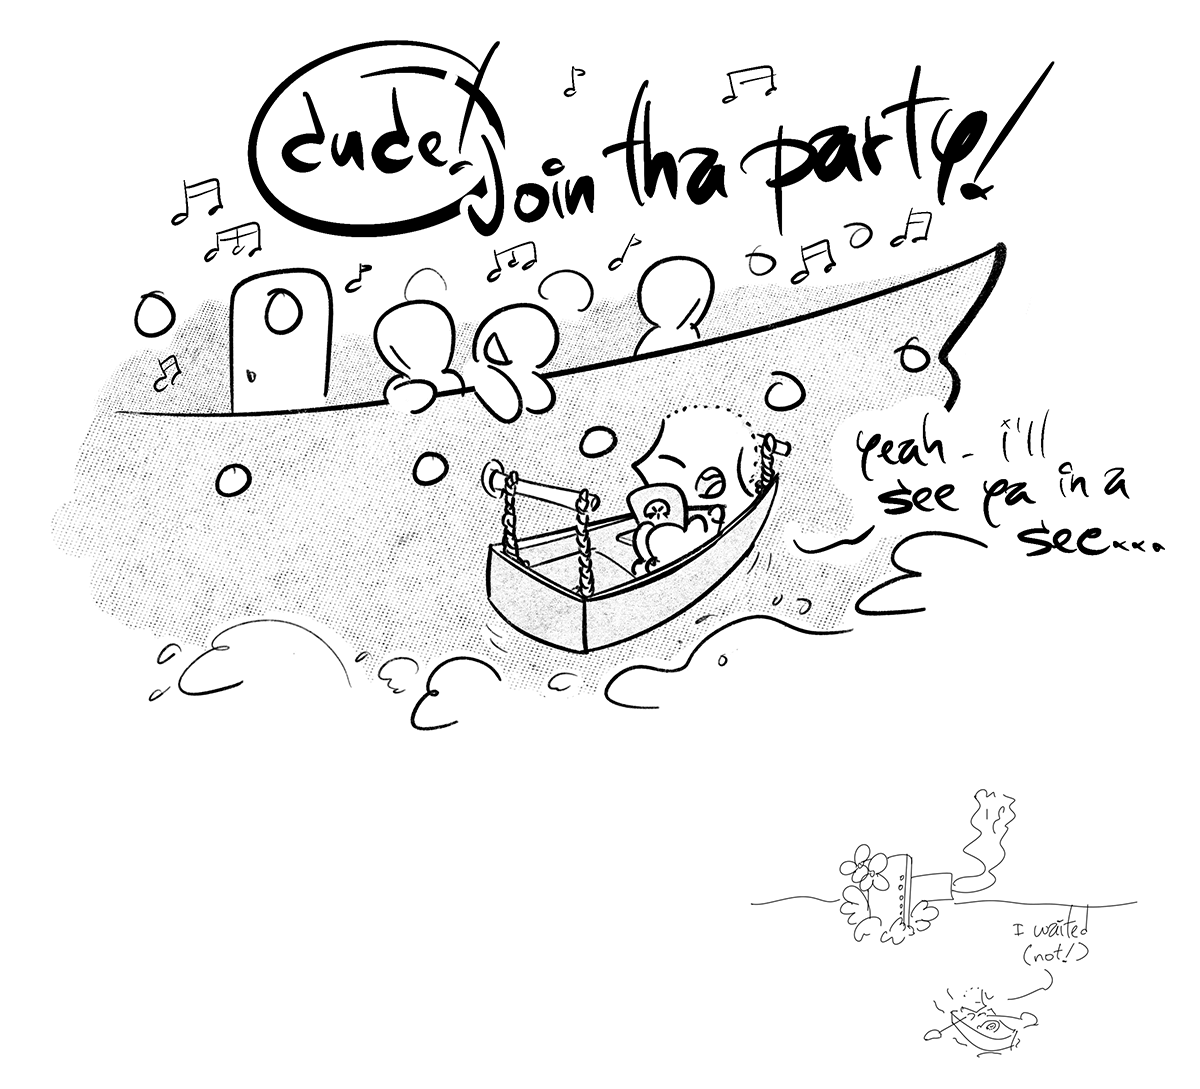 dude!
Join tha party!
yeah - i'll
see ya in a
sec...
I waited
(not!)